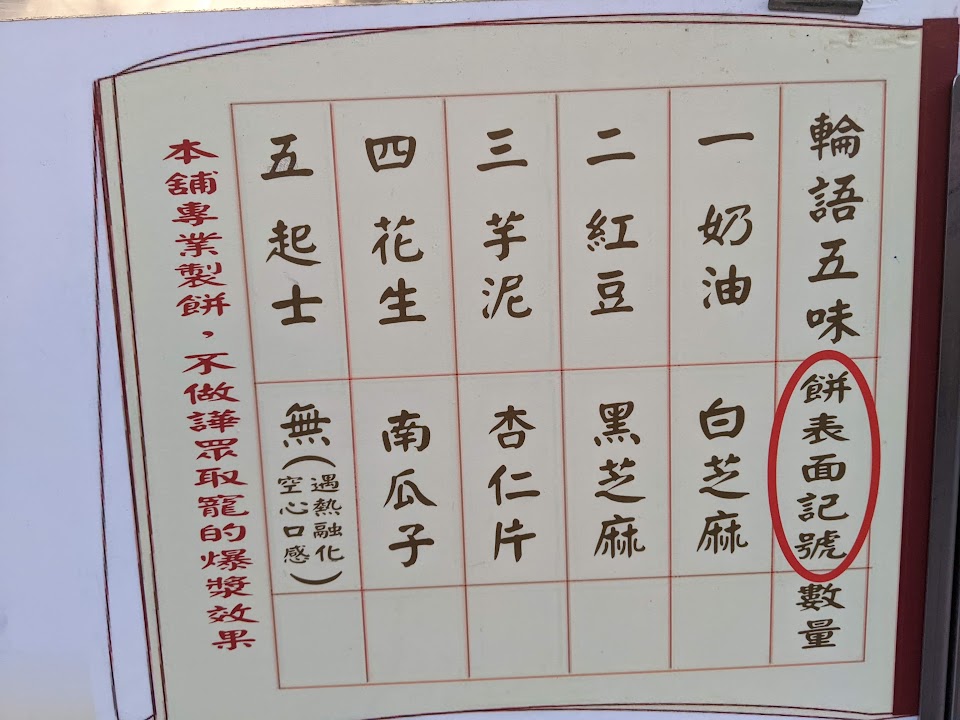 輪語五味 餅表面記號 數量
一奶油 白芝麻
二紅豆 黑芝麻
三芋泥 杏仁片
四花生 南瓜子
五起士 無(遇熱融化空心口感)
本舖專業製餅，不做譁眾取寵的爆漿效果